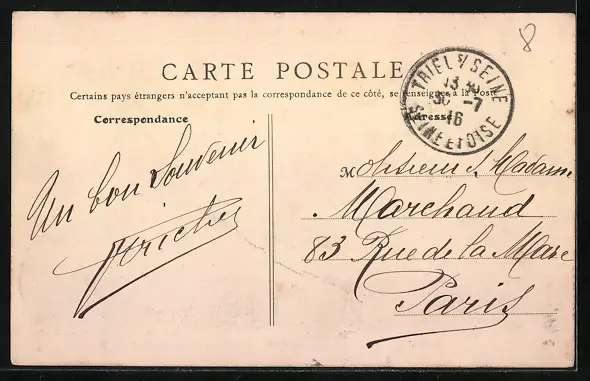 8
CARTE POSTALE
Certains pays étrangers n'acceptant pas la correspondance de ce côté, se renseigner à la Poste
TRIEL S/ SEINE
13 30
30 -7
16
SEINE ET OISE
Correspondance
Adresse
Un bon Souvenir
Monsieur & Madame
Marchand
83 Rue de la Mare
Paris